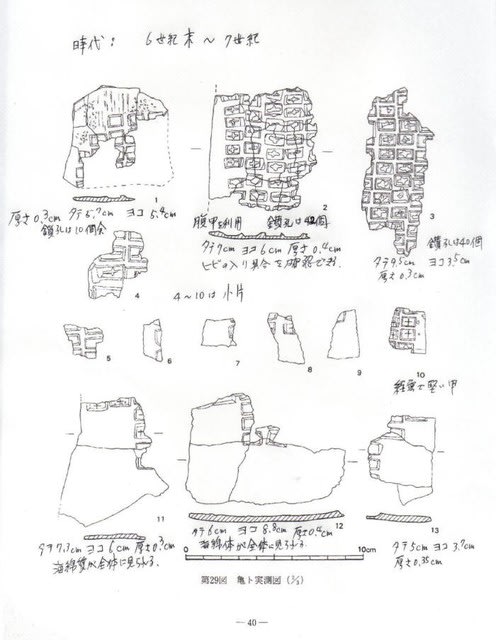 時代： 6世紀末～7世紀
1
2
3
厚さ0.3cm タテ5.7cm ヨコ5.4cm
鑚孔は10個余
腹甲を利用 鑚孔は
タテ7cm ヨコ6cm 厚さ0.4cm
ヒビの入り具合を確認でき
鑚孔は40個
タテ9.5cm ヨコ3.5cm
厚さ0.3cm
4
4～10は小片
5
6
7
8
9
10
堅い甲
11
12
13
タテ7.3cm ヨコ6cm 厚さ0.3cm
海綿質が全体に見られる.
タテ6cm ヨコ8.8cm 厚さ0.4cm
海綿体が全体に見られる.
タテ5cm ヨコ3.7cm
厚さ0.35cm
0
10cm
第29図 亀卜実測図（2/3）
— 40 —